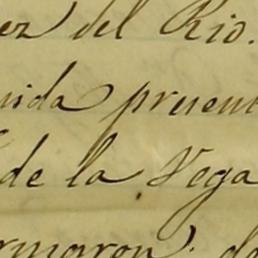 ez del Rio.
uida presen
de la Vega
rmaron; de